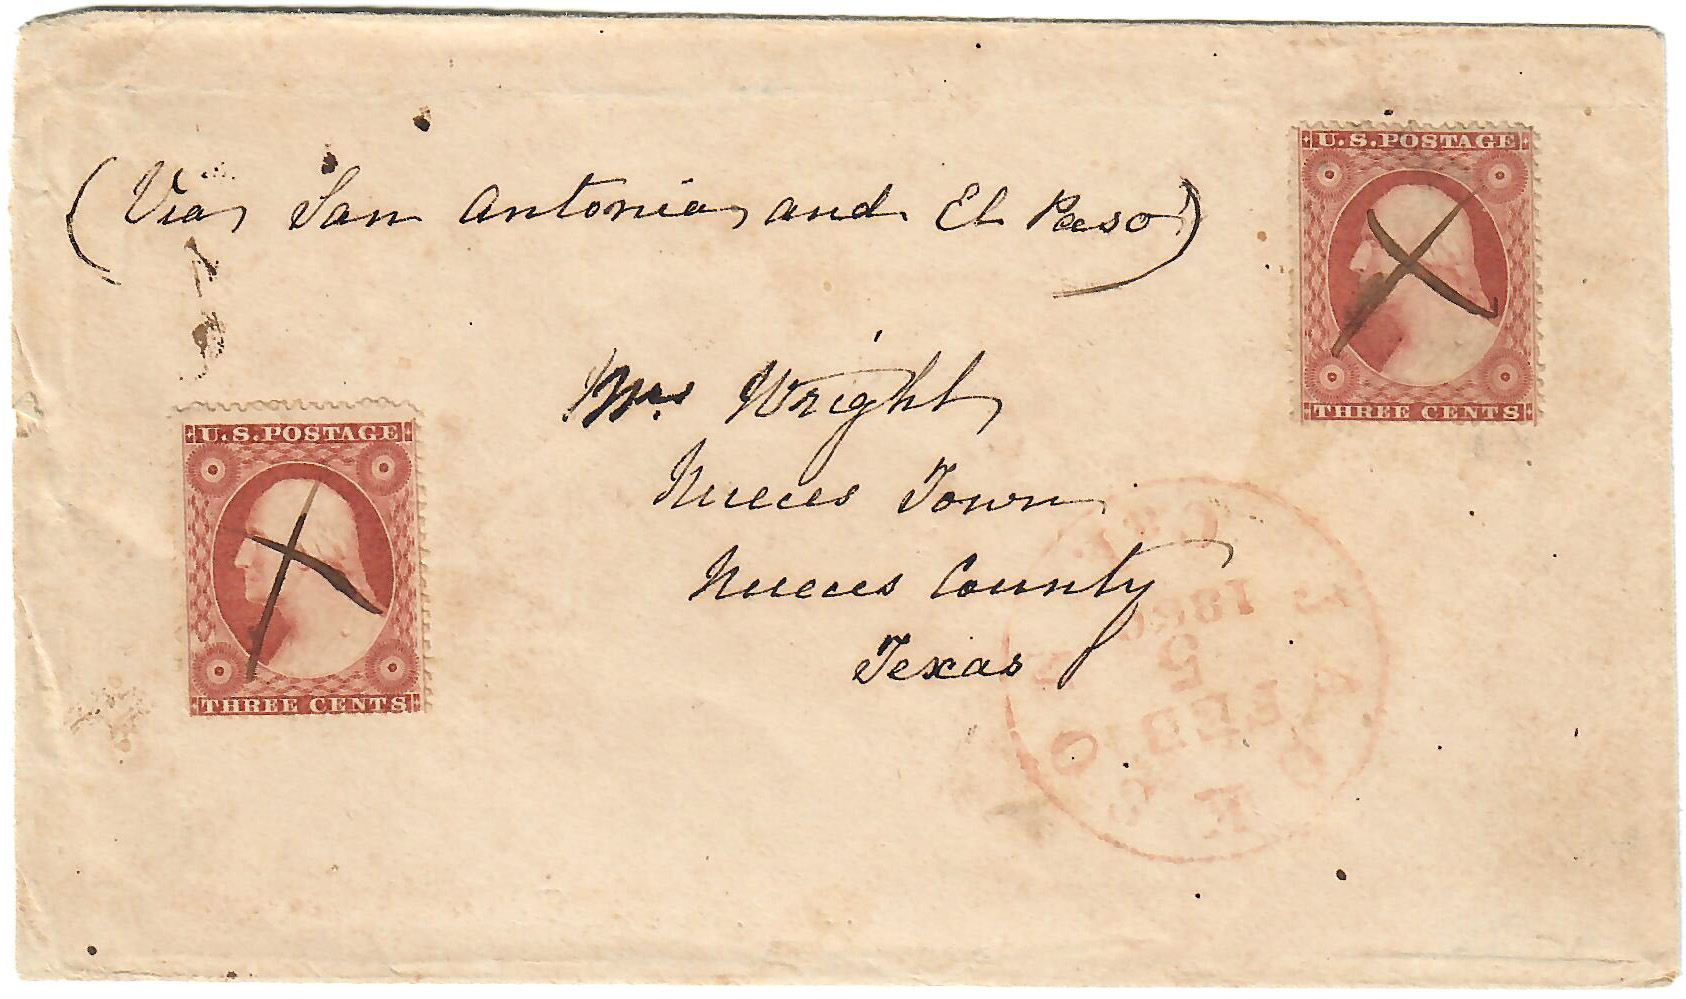 U.S. POSTAGE
THREE CENTS
(Via, San Antonio, and El Paso)
U.S. POSTAGE
THREE CENTS
Mrs Wright
Nueces Town
Nueces County
Texas
CAL.
1860
5
FEB